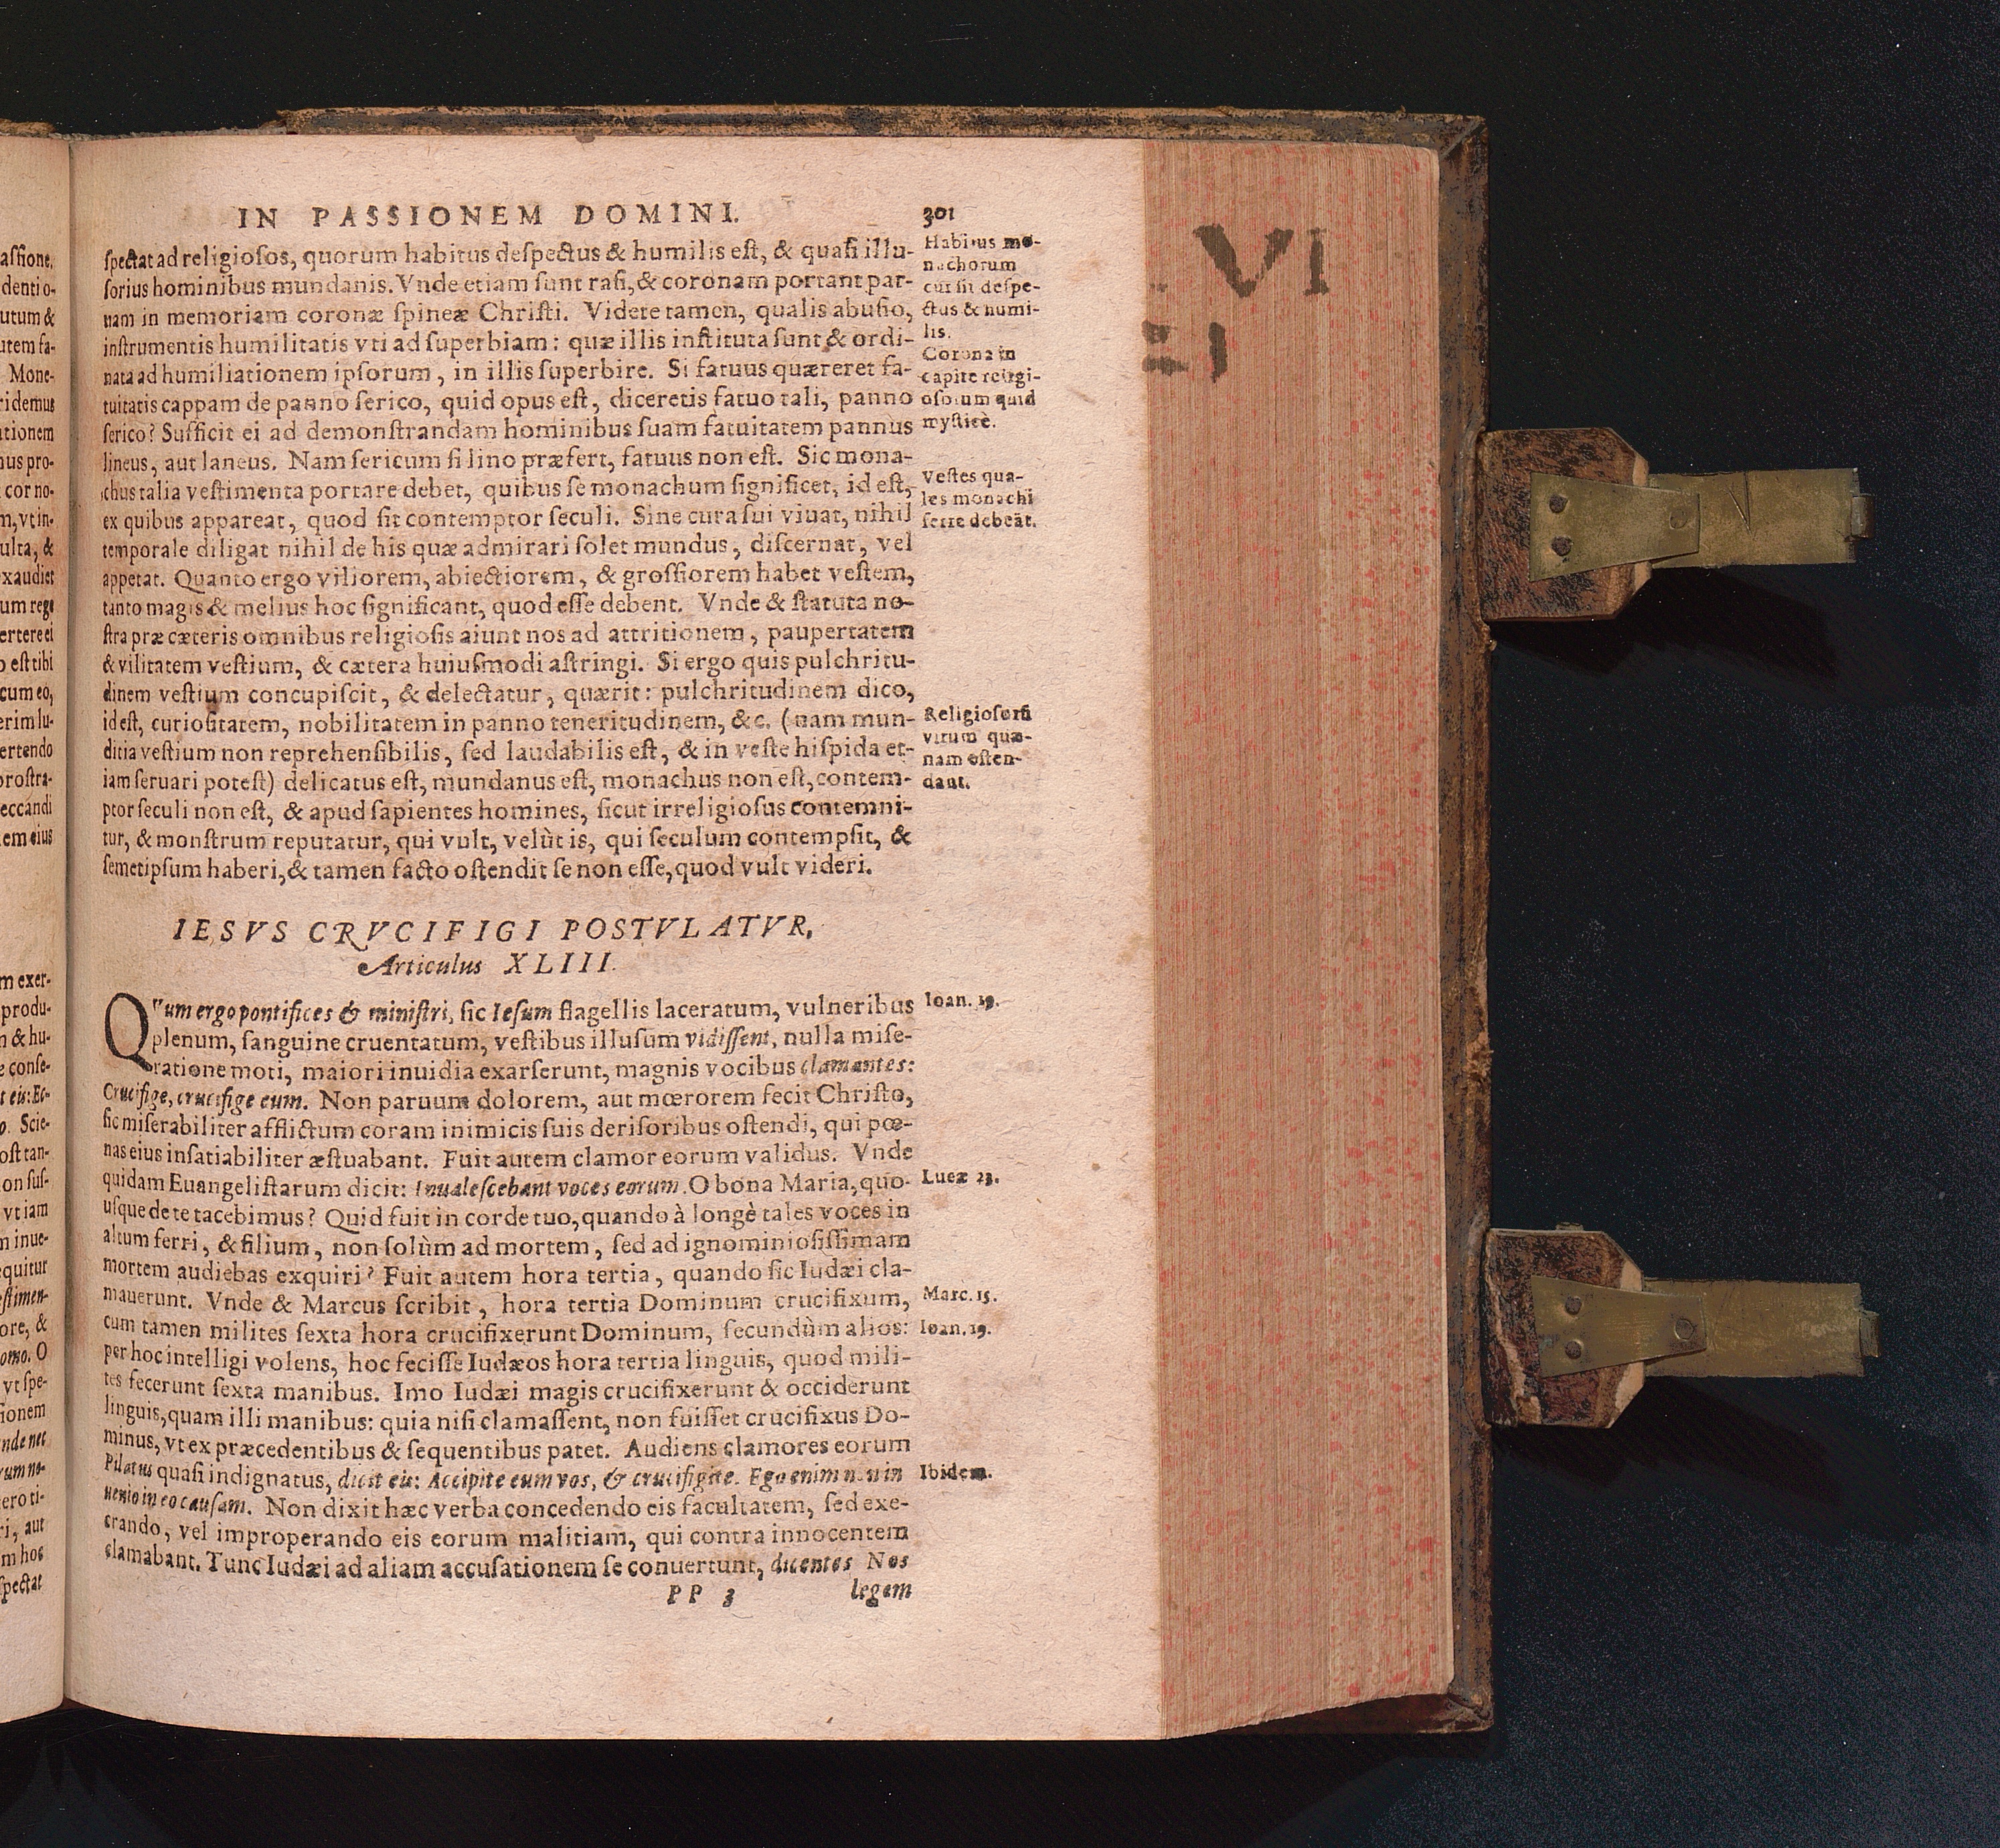 IN PASSIONEM DOMINI. 301
ſpectat ad religioſos, quorum habitus deſpectus & humilis eſt, & quaſi illu-
ſorius hominibus mundanis. Vnde etiam ſunt raſi, & coronam portant par-
uam in memoriam coronæ ſpineæ Chriſti. Videte tamen, qualis abuſio,
inſtrumentis humilitatis vti ad ſuperbiam: quæ illis inſtituta ſunt & ordi-
nata ad humiliationem ipſorum, in illis ſuperbire. Si fatuus quæreret fa-
tuitatis cappam de panno ſerico, quid opus eſt, diceretis fatuo tali, panno
ſerico? Sufficit ei ad demonſtrandam hominibus ſuam fatuitatem pannus
lineus, aut laneus. Nam ſericum ſi lino præfert, fatuus non eſt. Sic mona-
chus talia veſtimenta portare debet, quibus ſe monachum ſignificet, id eſt,
ex quibus appareat, quod ſit contemptor ſeculi. Sine cura ſui viuat, nihil
temporale diligat nihil de his quæ admirari ſolet mundus, diſcernat, vel
appetat. Quanto ergo viliorem, abiectiorem, & groſſiorem habet veſtem,
tanto magis & melius hoc ſignificant, quod eſſe debent. Vnde & ſtatuta no-
ſtra præ cæteris omnibus religioſis aiunt nos ad attritionem, paupertatem
& vilitatem veſtium, & cætera huiuſmodi aſtringi. Si ergo quis pulchritu-
dinem veſtium concupiſcit, & delectatur, quærit: pulchritudinem dico,
id eſt, curioſitatem, nobilitatem in panno teneritudinem, &c. (nam mun-
ditia veſtium non reprehenſibilis, ſed laudabilis eſt, & in veſte hiſpida et-
iam ſeruari poteſt) delicatus eſt, mundanus eſt, monachus non eſt, contem-
ptor ſeculi non eſt, & apud ſapientes homines, ſicut irreligioſus contemni-
tur, & monſtrum reputatur, qui vult, velùt is, qui ſeculum contempſit, &
ſemetipſum haberi, & tamen facto oſtendit ſe non eſſe, quod vult videri.
Habitus mo-
nachorum
cur ſit deſpe-
ctus & humi-
lis.
Corona in
capite religi-
oſorum quid
myſticè.
Veſtes qua-
les monachi
ferre debeāt.
Religioſorū
virum quæ-
nam oſten-
dant.
IESVS CRVCIFIGI POSTVLATVR,
Articulus XLIII.
QVum ergo pontifices & miniſtri, ſic Ieſum flagellis laceratum, vulneribus
plenum, ſanguine cruentatum, veſtibus illuſum vidiſſent, nulla miſe-
ratione moti, maiori inuidia exarſerunt, magnis vocibus clamantes:
Crucifige, crucifige eum. Non paruum dolorem, aut mœrorem fecit Chriſto,
ſic miſerabiliter afflictum coram inimicis ſuis deriſoribus oſtendi, qui pœ-
nas eius inſatiabiliter æſtuabant. Fuit autem clamor eorum validus. Vnde
quidam Euangeliſtarum dicit: Inualeſcebant voces eorum. O bona Maria, quo-
uſque de te tacebimus? Quid fuit in corde tuo, quando à longè tales voces in
altum ferri, & filium, non ſolùm ad mortem, ſed ad ignominioſiſſimam
mortem audiebas exquiri? Fuit autem hora tertia, quando ſic Iudæi cla-
mauerunt. Vnde & Marcus ſcribit, hora tertia Dominum crucifixum,
cum tamen milites ſexta hora crucifixerunt Dominum, ſecundùm alios:
per hoc intelligi volens, hoc feciſſe Iudæos hora tertia linguis, quod mili-
tes fecerunt ſexta manibus. Imo Iudæi magis crucifixerunt & occiderunt
linguis, quam illi manibus: quia niſi clamaſſent, non fuiſſet crucifixus Do-
minus, vt ex præcedentibus & ſequentibus patet. Audiens clamores eorum
Pilatus quaſi indignatus, dicit eis: Accipite eum vos, & crucifigite. Ego enim non in
uenio in eo cauſam. Non dixit hæc verba concedendo eis facultatem, ſed exe-
crando, vel improperando eis eorum malitiam, qui contra innocentem
clamabant. Tunc Iudæi ad aliam accuſationem ſe conuertunt, dicentes Nos
PP 3 legem
Ioan. 19.
Lucæ 23.
Marc. 15.
Ioan. 19.
Ibidem.
VI